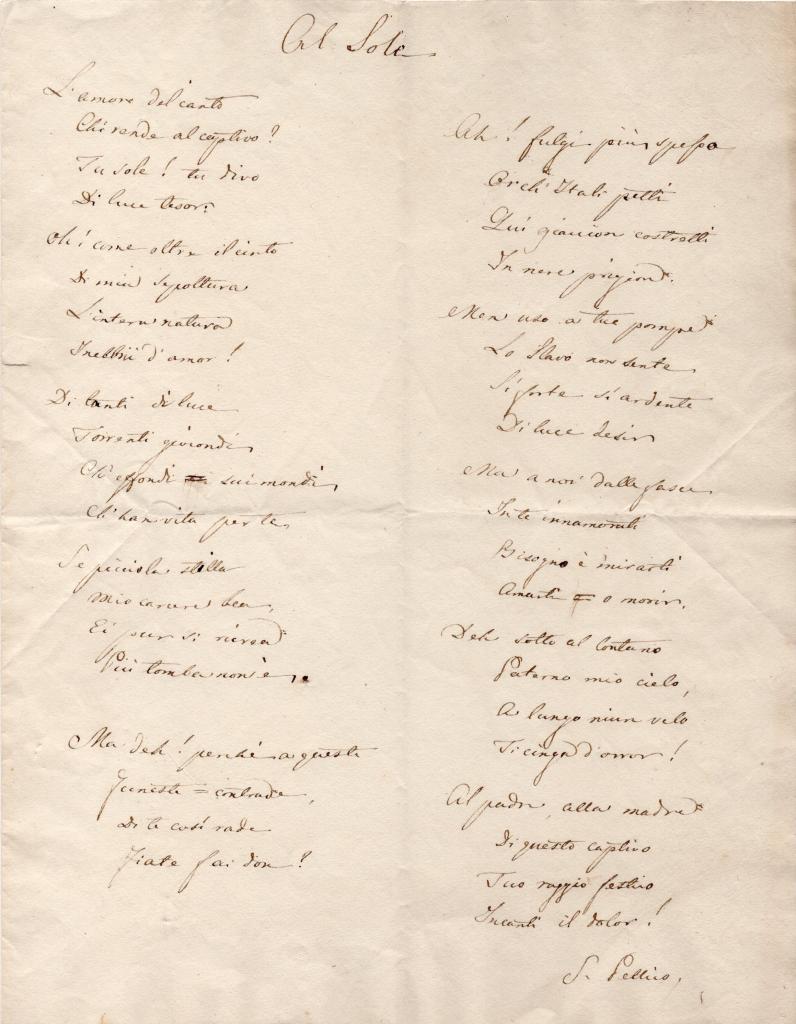 Al Sole
L'amore del canto
Chi rende al captivo?
Tu sole! tu divo
Di luce tesor.
Oh! come oltre il cinto
Di mia sepoltura
L'intera natura
Inebbii d'amor!
Di tanti di luce
Torrenti giocondi,
Ch'effondi sui mondi,
Ch'han vita per te,
Se picciola stilla
Mio carcere bea,
Ei pur si ricrea
Più tomba non è.
Ma deh! perchè a queste
Funeste = contrade,
Di te così rade
Fiate fai don?
Ah! fulgi più spesso
Or ch'Itali petti
Qui giaccion costretti
In nere prigion.
Men uso a tue pompe
Lo Slavo non sente
Sì forte sì ardente
Di luce desir
Ma a noi dalle fasce
In te innamorati
Bisogno è mirarti
Amarti = o morir.
Deh sotto al lontano
Paterno mio cielo,
A lungo niun velo
Ti cinga d'orror!
Al padre, alla madre
Di questo captivo
Tuo raggio festivo
Incanti il dolor!
S. Pellico,